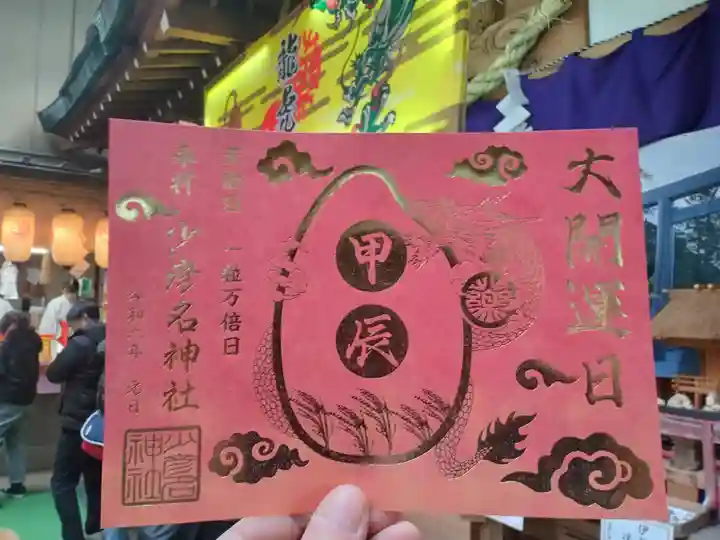 大開運日
甲
辰
薬
天赦日 一粒万倍日
奉拝 少彦名神社
令和六年 元日
少彦名
神社
龍虎